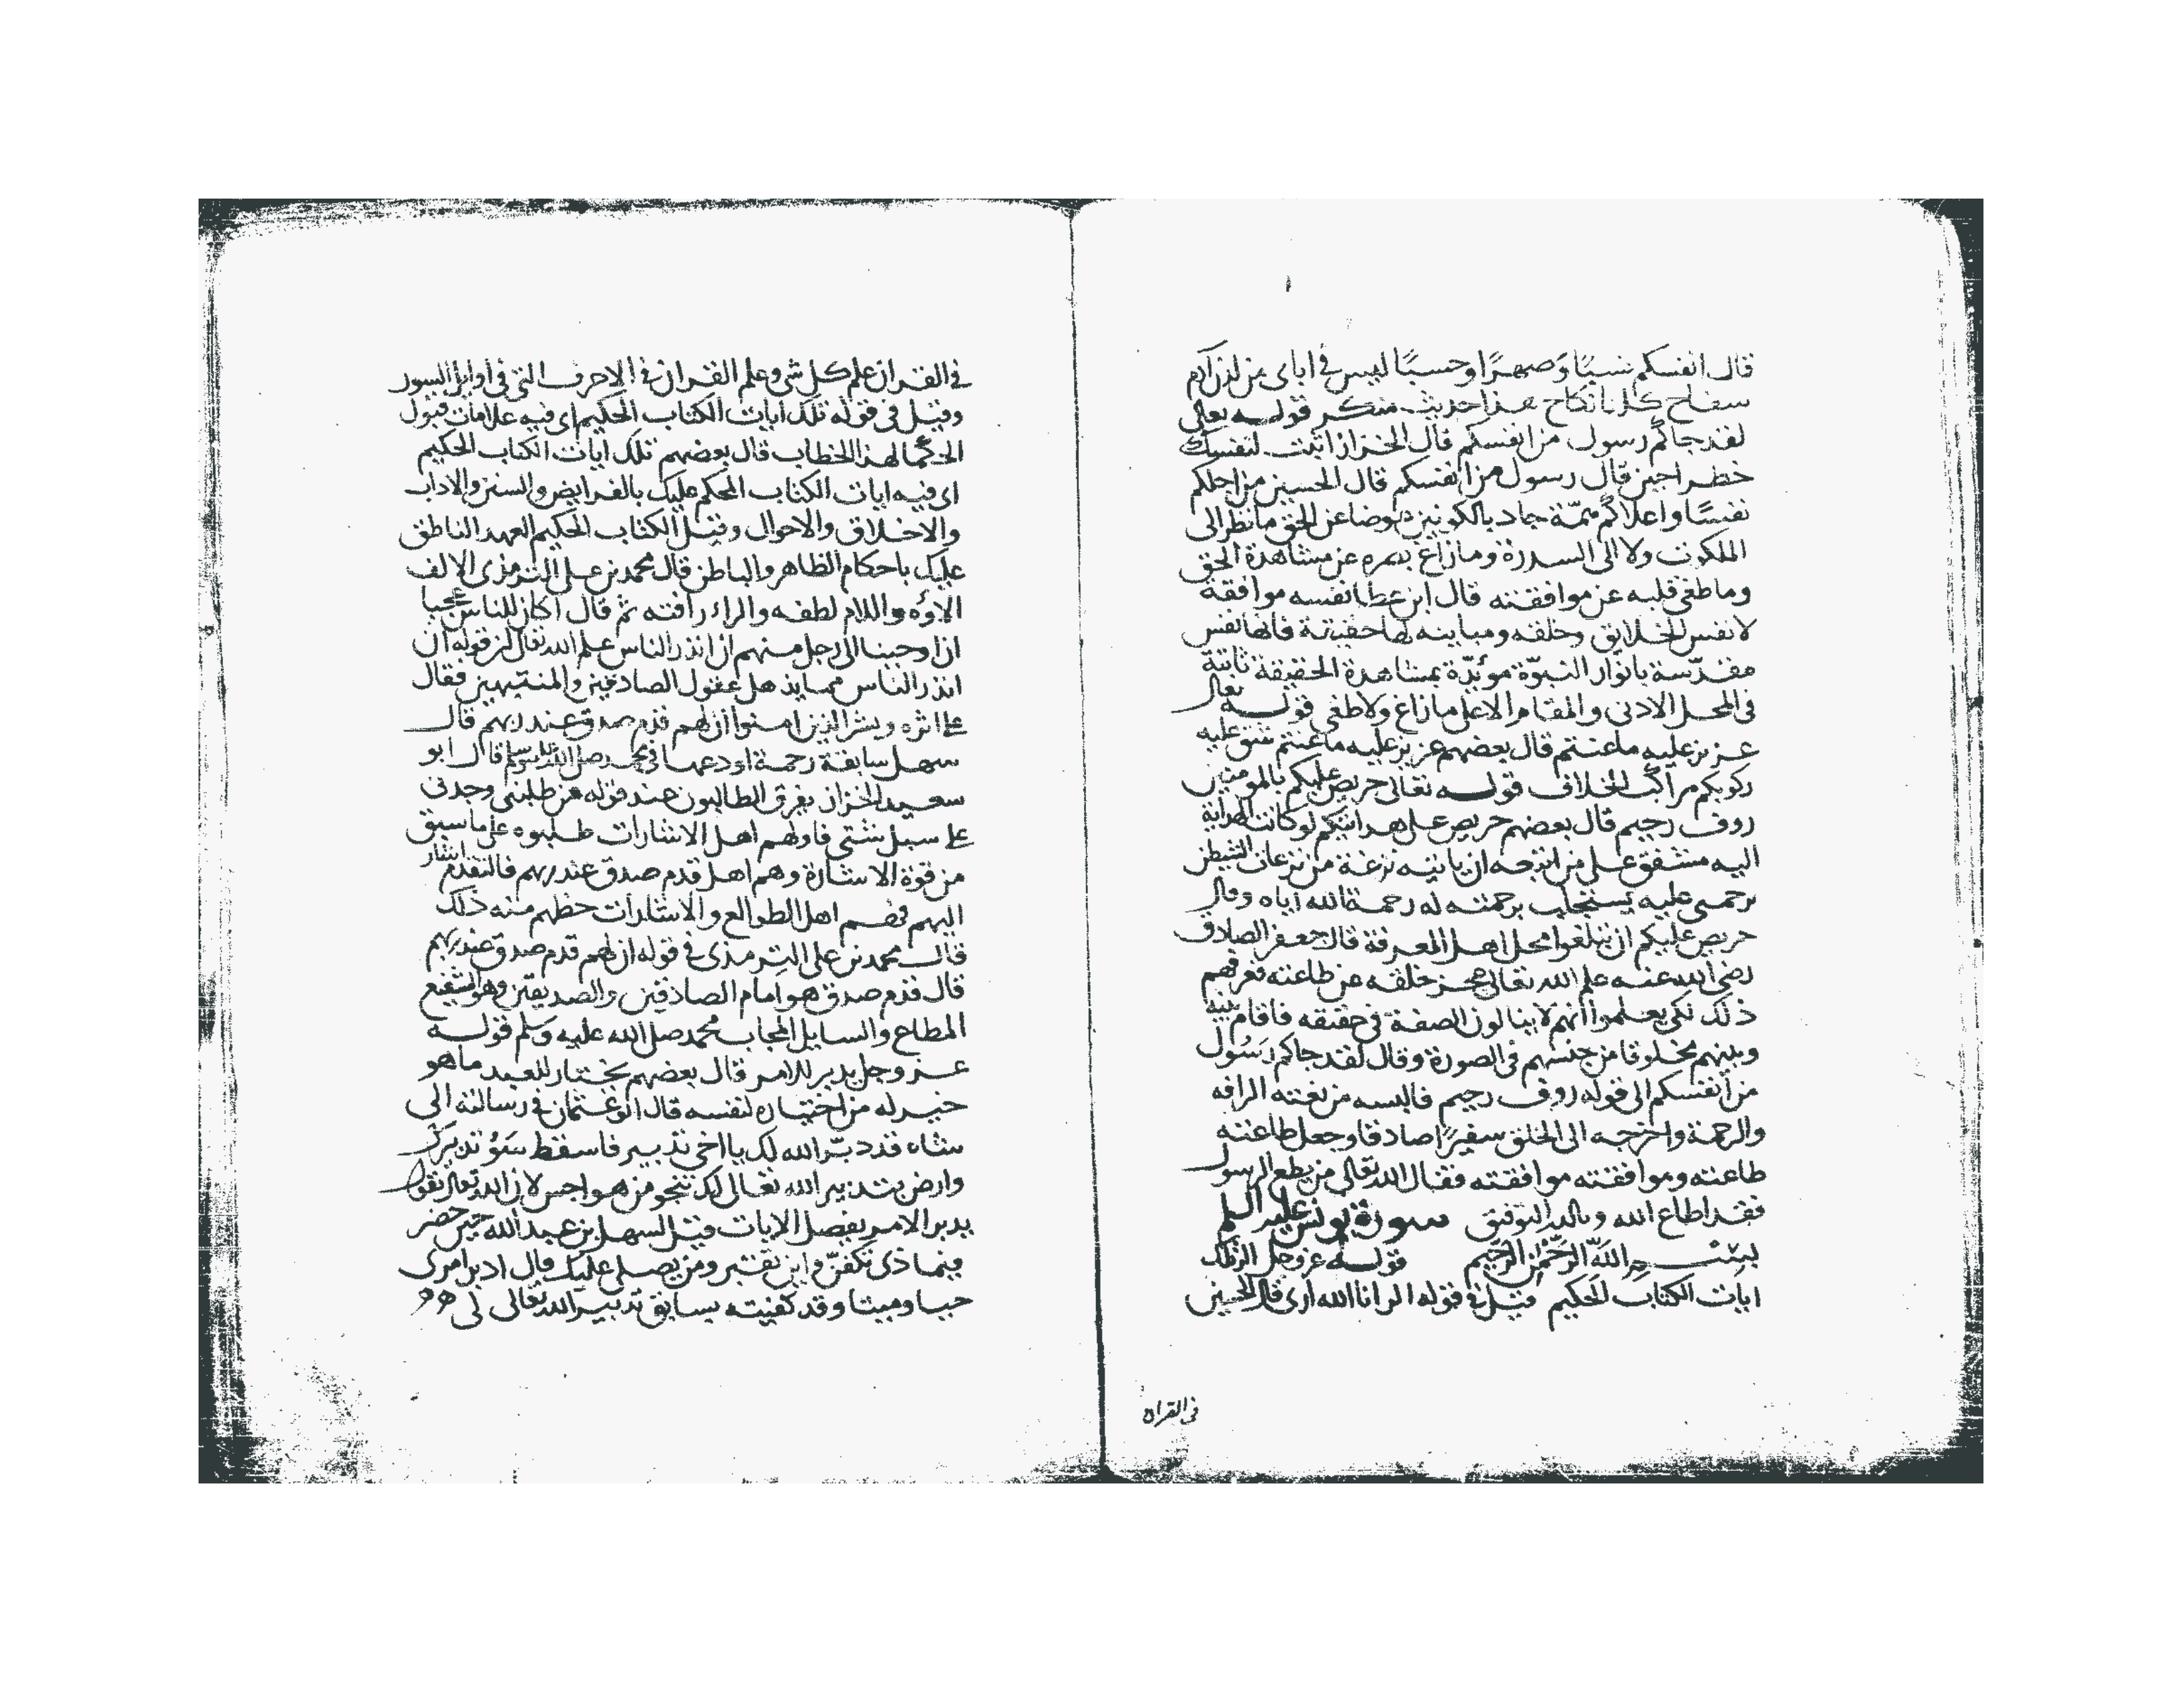 قال انفسكم نسبًا وصهرًا وحسبًا ليس في اباى من لدن آدم
سفاح كلنا نكاح هذا حديث منكر قوله تعالى
لقد جاكم رسول من انفسكم قال الخراز اثبت لنفسك
خطرا حين قال رسول من انفسكم قال الحسين من اجلكم
نفسًا واعلاكم همّة جاد بالكونين عوضا عن الحق ما نظر الى
الملكوت ولا الى السدرة وما زاغ بصره عن مشاهدة الحق
وما طغى قلبه عن موافقته قال ابن عطا نفسه موافقة
لانفس الخلايق وخلقه ومباينه لها حقيقة فانها نفس
مقدّسة بانوار النبوّة مؤيّدة بمشاهدة الحقيقة ثابتة
في المحل الادنى والمقام الاعلى ما زاغ وما طغى قوله تعالى
عزيز عليه ما عنتم قال بعضهم عزيز عليه ما عنتم شق عليه
ركوبكم مراكب الخلاف قوله تعالى حريص عليكم بالمومنين
روف رحيم قال بعضهم حريص على هدايتكم لو كانت الهداية
اليه مشفق على من اتبعه ان ياتيه نزغة من نزغات الشيطن
رحيم عليه يستجلب برحمته له رحمة الله اياه وقال
حريص عليكم ان تبلغوا محل اهل المعرفة قال جعفر الصادق
رضى الله عنه علم الله تعالى عجز خلقه عن طاعته فعرفهم
ذلك لكى يعلموا انهم لا ينالون الصفة في حقيقه فاقام بينه
وبينهم مخلوقا من جنسهم في الصورة وقال لقد جاكم رسول
من انفسكم الى قوله روف رحيم فالبسه من نعته الرافه
والرحمة واخرجه الى الخلق سفيرًا صادقا وجعل طاعته
طاعته وموافقته موافقته فقال الله تعالى من يطع الرسول
فقد اطاع الله وبالله التوفيق سورة يونس عليه السلم
بسم الله الرحمن الرحيم قوله عز وجل الر تلك
ايات الكتاب الحكيم قيل في قوله الر انا الله ارى قال الحسين
في القران
في القران علم كل شى وعلم القران في الاحرف التى في اوايل السور
وقيل في قوله تلك ايات الكتاب الحكيم اى فيه علامات قبول
الحكما لهذا الخطاب قال بعضهم تلك ايات الكتاب الحكيم
اى فيه ايات الكتاب المحكم عليك بالفرايض والسنن والاداب
والاخلاق والاحوال وقيل الكتاب الحكيم العهد الناطق
عليك باحكام الظاهر والباطن قال محمد بن على الترمذى الالف
الاؤه واللام لطفه والراء رافته ثم قال اكان للناس عجبا
ان اوحينا الى رجل منهم ان انذر الناس علم الله تعالى ان قوله ان
انذر الناس مما يذهل عقول الصادقين والمنتبهين فقال
على اثره وبشر الذين امنوا ان لهم قدم صدق عند ربهم قال
سهل سابقة رحمة اودعها في محمد رسول الله صلى الله عليه وسلم قال ابو
سعيد الخزاز تفرق الطالبون عند قوله من طلبنى وجدنى
على سبل شتى فاولهم اهل الاشارات طلبوه على ما سبق
من قوة الاشارة وهم اهل قدم صدق عند ربهم فالتقدم اشار
اليهم فهم اهل الطوالع والاشارات حظهم منه ذلك
قال محمد بن على الترمذى في قوله ان لهم قدم صدق عند ربهم
قال قدم صدق هو امام الصادقين والصديقين وهو الشفيع
المطاع والسايل المجاب محمد صلى الله عليه وسلم قوله
عز وجل يدبر الامر قال بعضهم يختار للعبد ما هو
خير له من اختياره لنفسه قال ابو عثمان في رسالته الى
شاه قد دبّر الله لك يا اخى تدبير فاسقط سؤ تدبيرك
وارض بتدبير الله تعالى لك تنجو من هواجس لان الله تعالى يقول
يدبر الامر يفصل الايات قيل لسهل بن عبد الله حين حضر
فيماذى تكفنّ واين تقبر ومن يصلى عليك قال ادبر امرى
حيا وميتا وقد كفيته بسابق تدبير الله تعالى لى